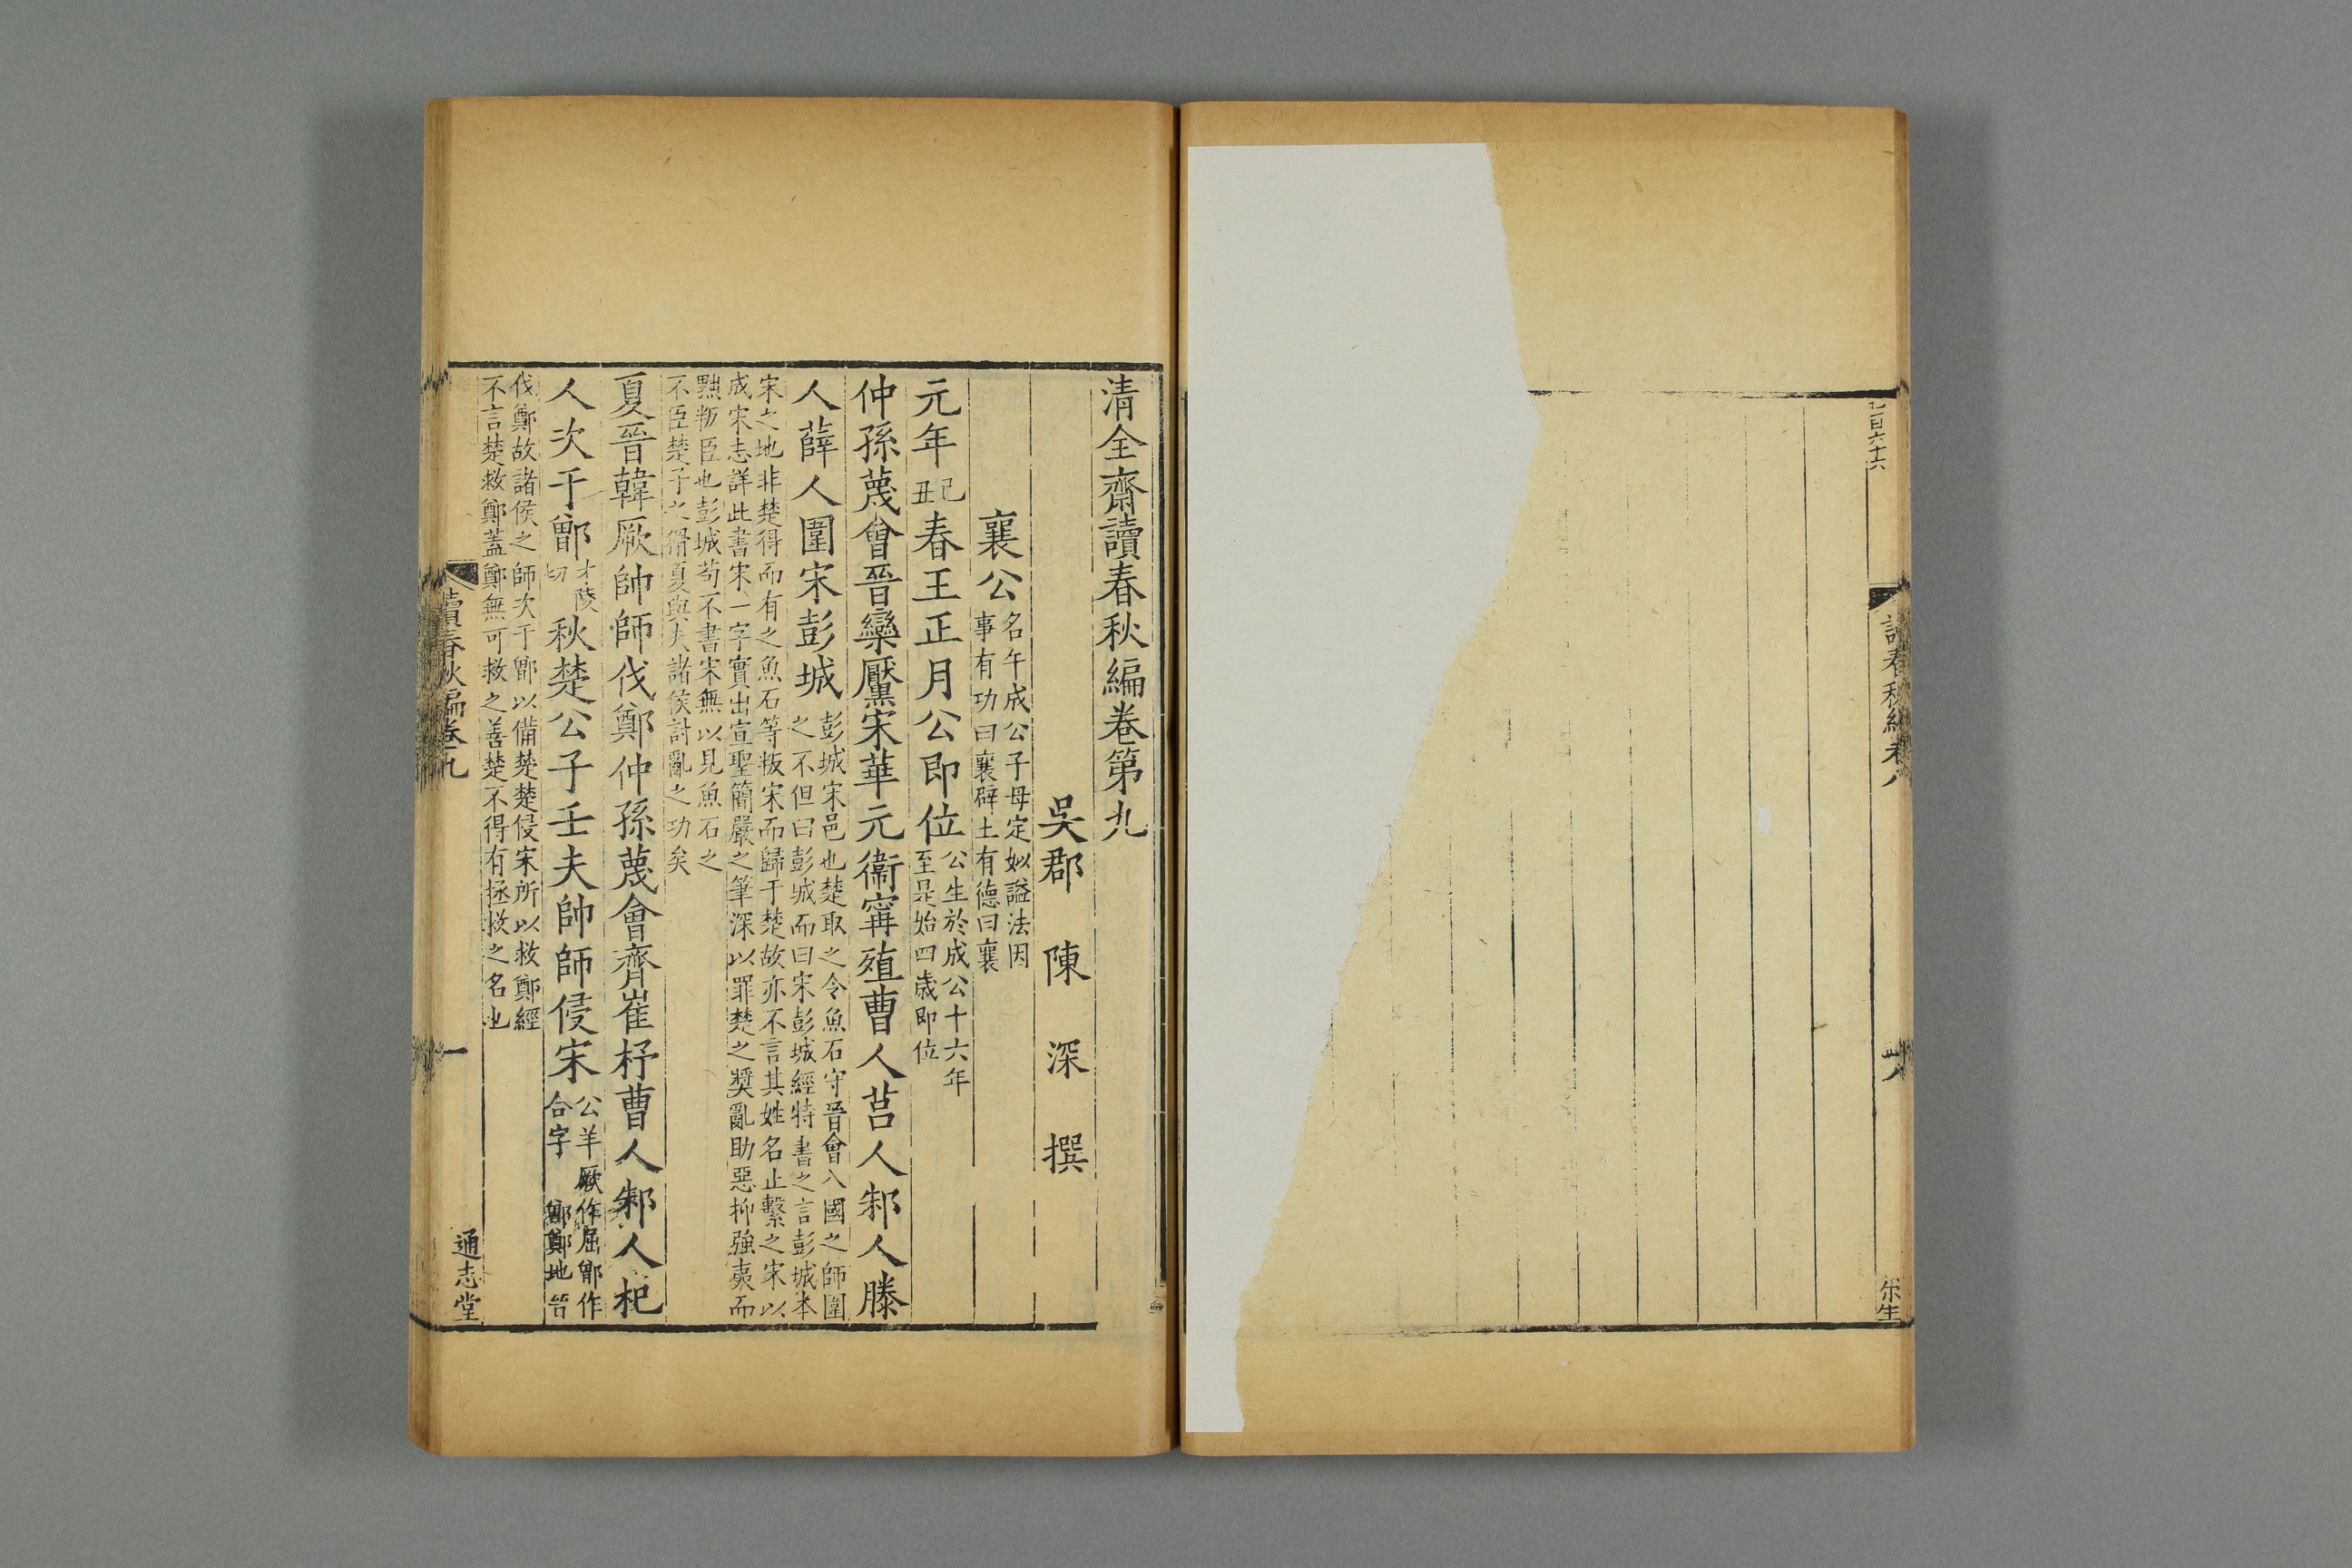 六十六
讀春秋編卷八
清全齋讀春秋編卷第九
吳郡 陳 深 撰
襄公 名午成公子母定姒謚法因
事有功曰襄辟土有德曰襄
元年 己丑 春王正月公即位 公生於成公十六年
至是始四歲即位
仲孫蔑會晉欒黶宋華元衞甯殖曹人莒人邾人滕
人薛人圍宋彭城 彭城宋邑也楚取之令魚石守晉會八國之師圍
之不但曰彭城而曰宋彭城經特書之言彭城本
宋之地非楚得而有之魚石等叛宋而歸于楚故亦不言其姓名止繫之宋以
成宋志詳此書宋一字實出宣聖簡嚴之筆深以罪楚之奬亂助惡抑強夷而
黜叛臣也彭城苟不書宋無以見魚石之
不臣楚子之猾夏與夫諸侯討亂之功矣
夏晉韓厥帥師伐鄭仲孫蔑會齊崔杼曹人邾人杞
人次于鄫 才陵切 秋楚公子壬夫帥師侵宋 公羊厥作屈鄫作
合字 鄫鄭地 晉
伐鄭故諸侯之師次于鄫以備楚楚侵宋所以救鄭經
不言楚救鄭蓋鄭無可救之善楚不得有拯救之名也
讀春秋編卷九
一
通志堂